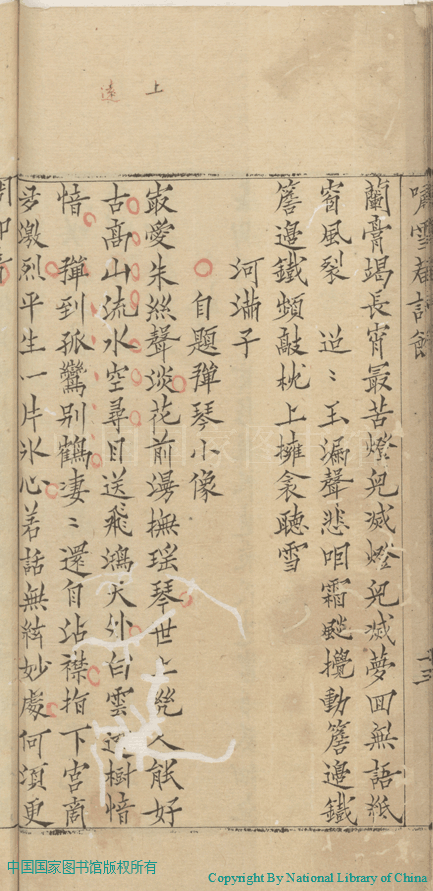 上
遠
嘯雪菴詩餘
十三
蘭膏竭長宵最苦燈兒滅燈兒滅夢回無語紙
窗風裂 迢〻玉漏聲悲咽霜颷攪動簷邊鐵
簷邊鐵頻敲枕上擁衾聽雪
河滿子
自題彈琴小像
最愛朱絲聲淡花前漫撫瑤琴世上幾人能好
古高山流水空尋目送飛鴻天外白雲遠樹愔
愔 彈到孤鸞別鶴凄〻還自沾襟指下宮商
多激烈平生一片氷心若話無絃妙處何須更
中国国家图书馆版权所有
Copyright By National Library of China